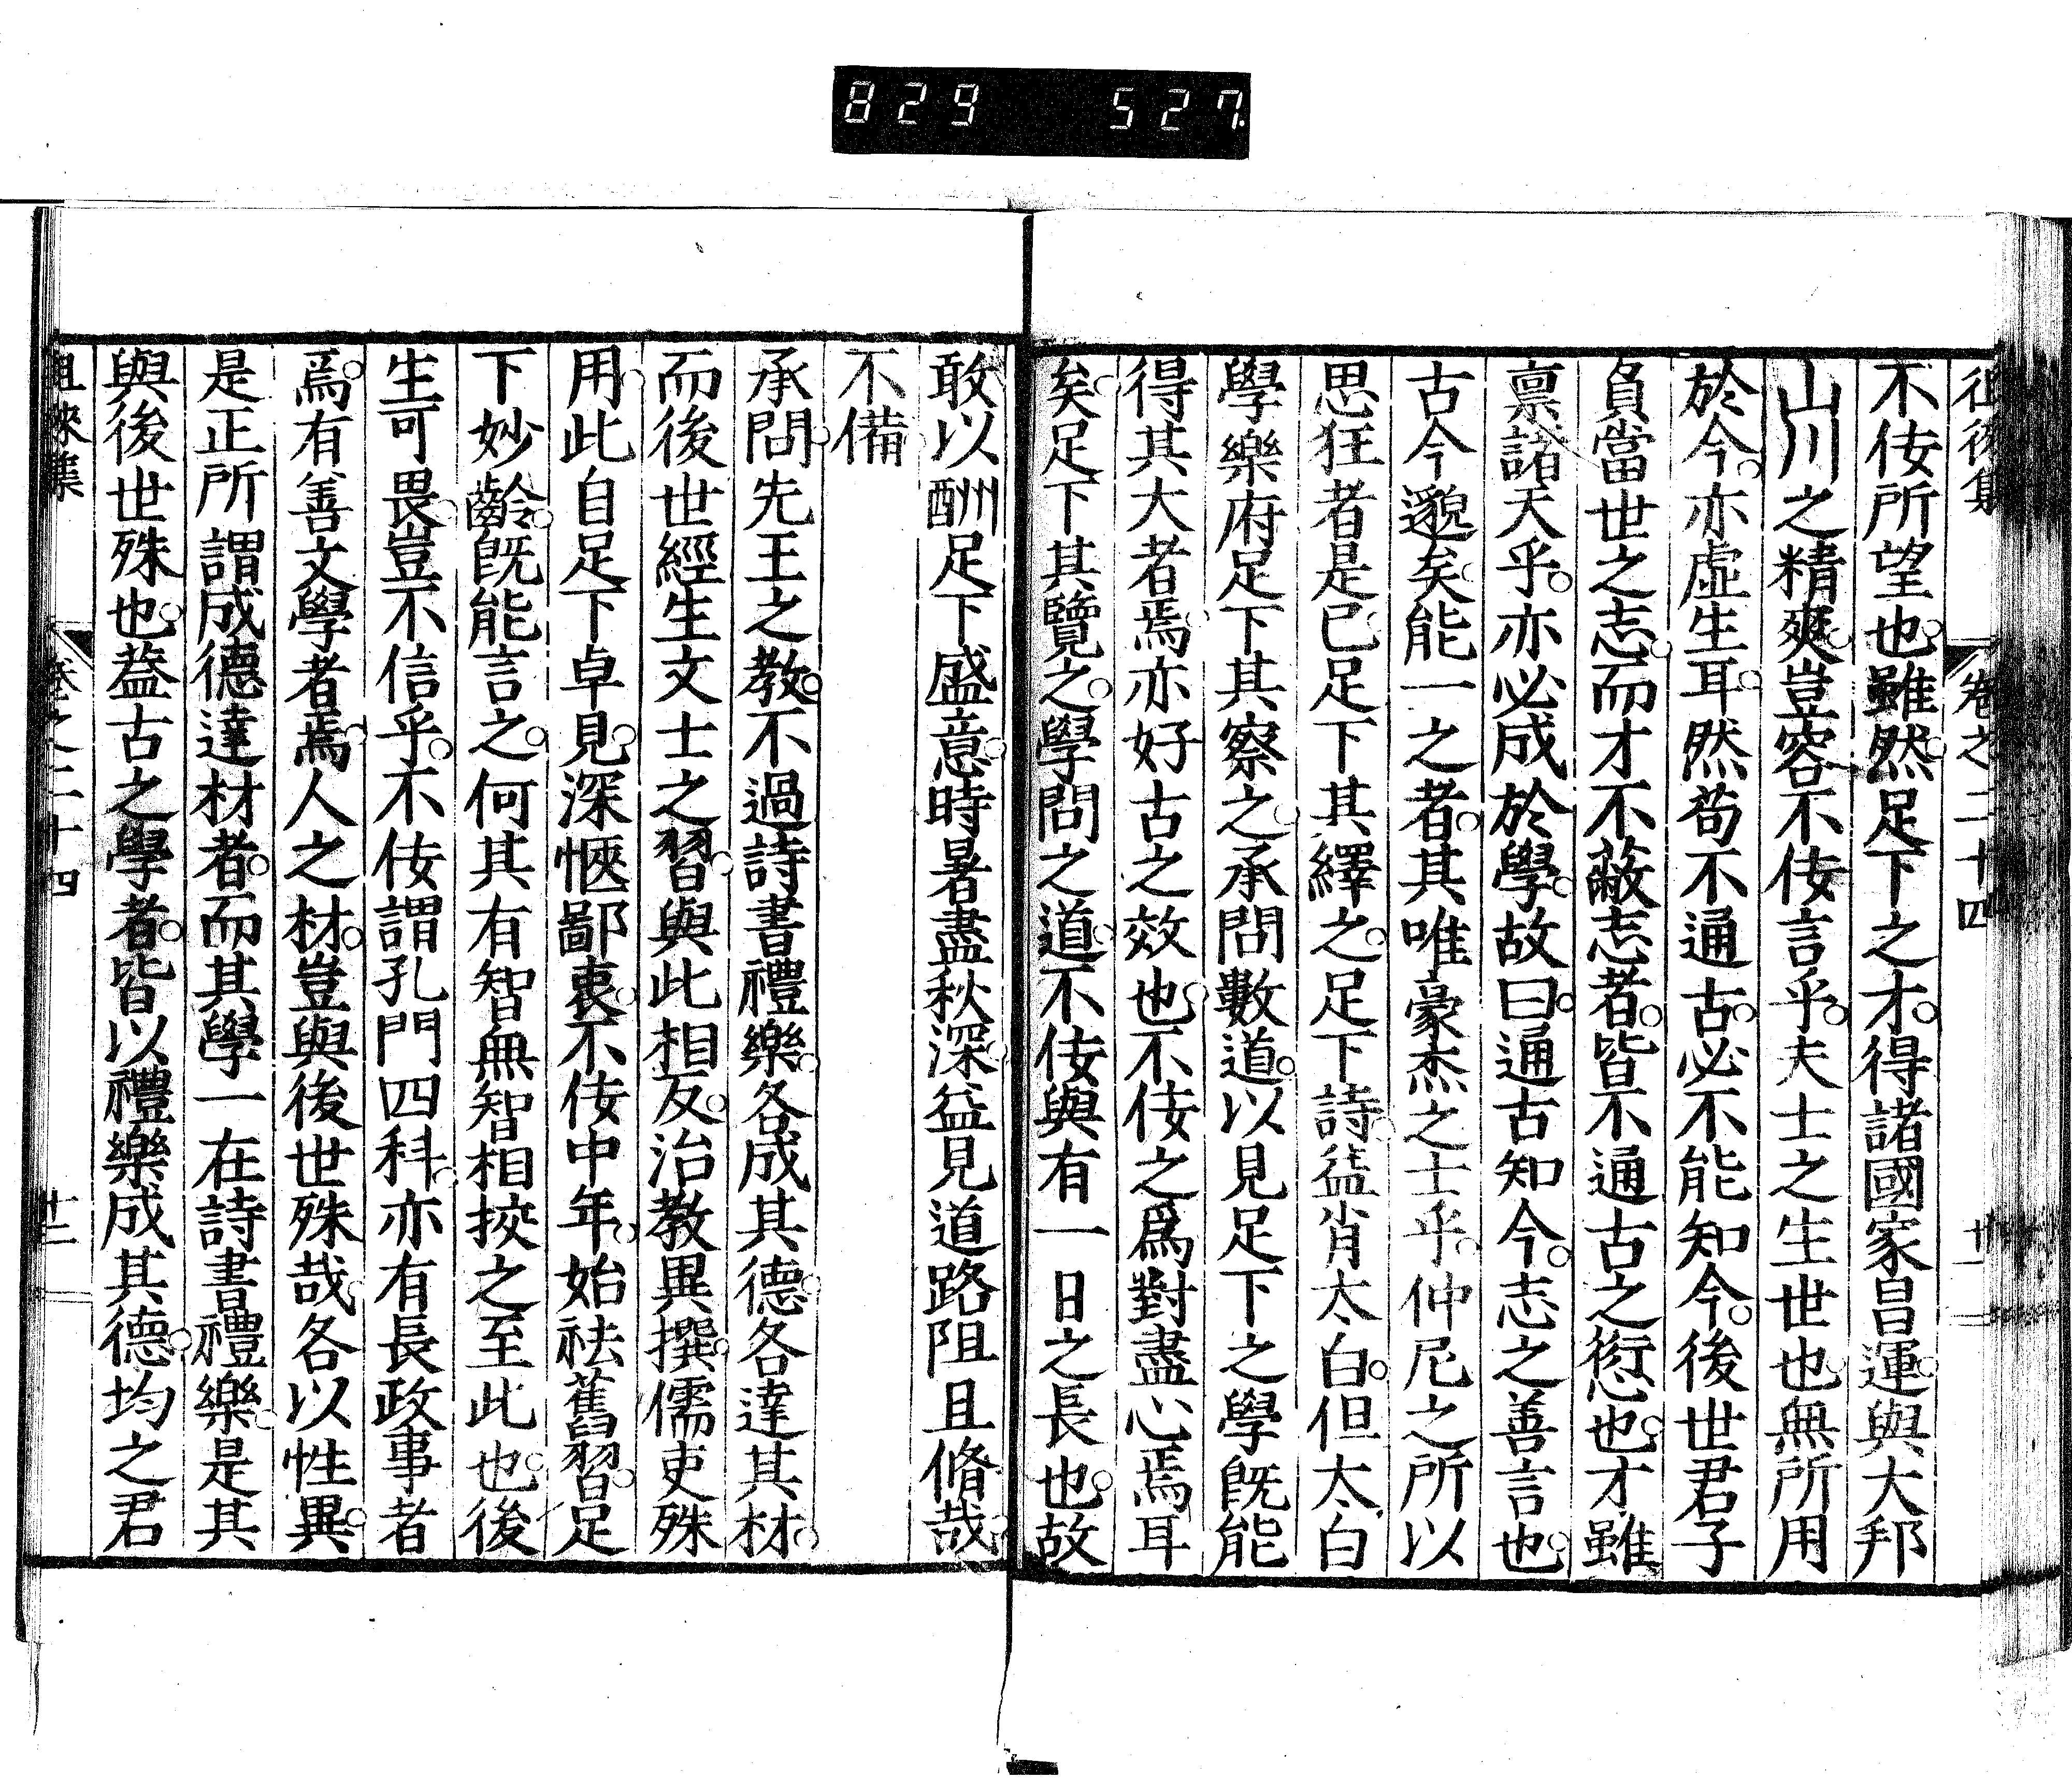 829 527
徂徠集 卷之二十四 十一
不佞所望也。雖然。足下之才。得諸國家昌運。與大邦
山川之精爽。豈容不佞言乎。夫士之生世也。無所用
於今。亦虛生耳。然苟不通古。必不能知今。後世君子
負當世之志。而才不蔽志者。皆不通古之愆也。才雖
禀諸天乎。亦必成於學。故曰。通古知今。志之善言也。
古今邈矣。能一之者。其唯豪杰之士乎。仲尼之所以
思狂者是已。足下其繹之。足下詩。益肖太白。但太白
學樂府。足下其察之。承問數道。以見足下之學既能
得其大者焉。亦好古之效也。不佞之爲對盡心焉耳
矣。足下其覽之。學問之道。不佞與有一日之長也。故
敢以酬足下盛意。時暑盡秋深。益見道路阻且脩哉。
不備
承問。先王之教。不過詩書禮樂。各成其德。各達其材。
而後世經生文士之習。與此相反。治教異撰。儒吏殊
用。此自足下卓見。深愜鄙衷。不佞中年。始祛舊習。足
下妙齡。既能言之。何其有智無智相挍之至此也。後
生可畏。豈不信乎。不佞謂孔門四科。亦有長政事者
焉。有善文學者焉。人之材。豈與後世殊哉。各以性異。
是正所謂成德達材者。而其學一在詩書禮樂。是其
與後世殊也。蓋古之學者。皆以禮樂成其德。均之君
徂徠集 卷之二十四 十二